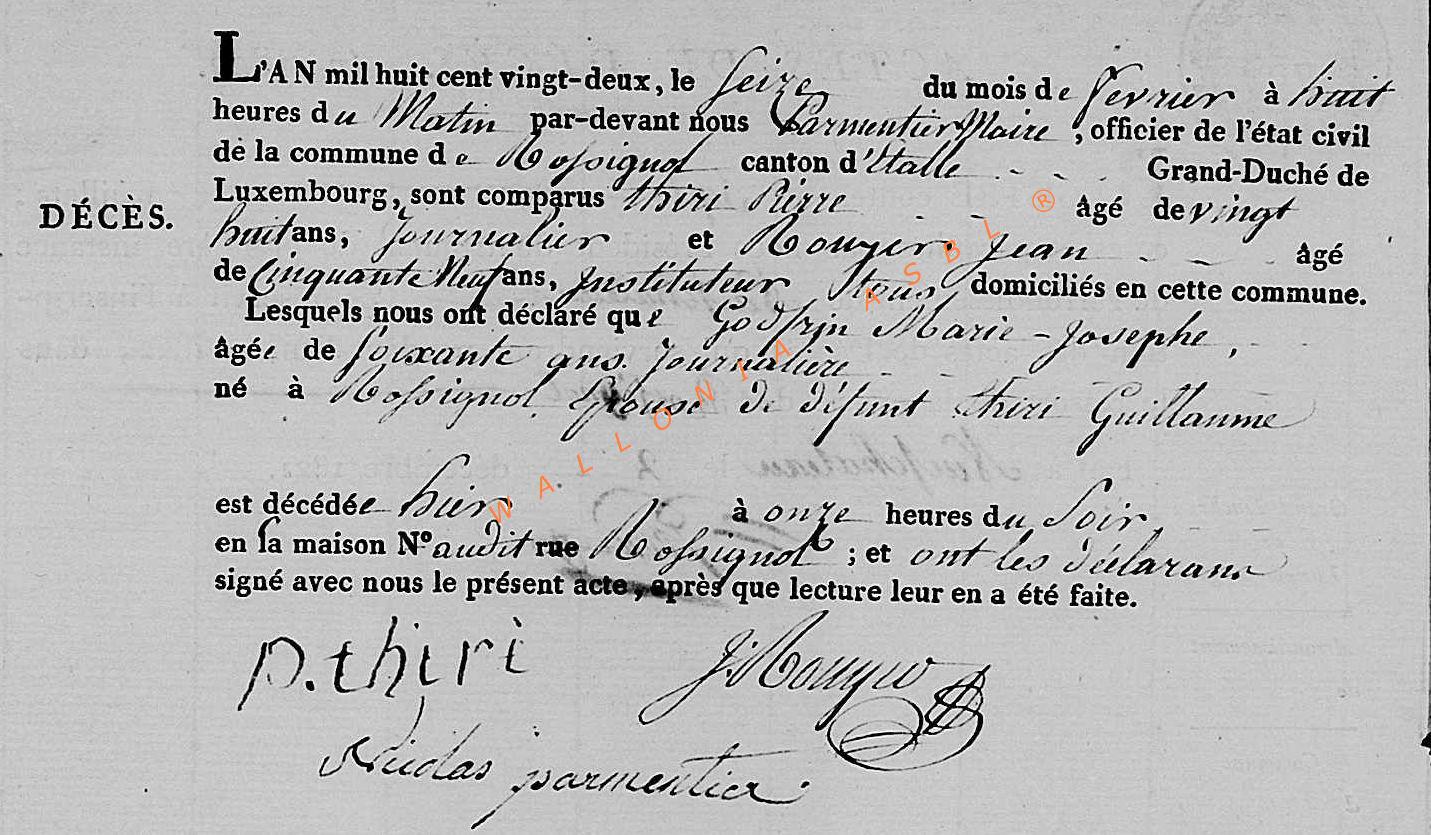 L'AN mil huit cent vingt-deux, le Seize du mois de fevrier à huit
heures du Matin par-devant nous Parmentier Maire, officier de l'état civil
de la commune de Rossignol canton d'Etalle - - - Grand-Duché de
Luxembourg, sont comparus thiri Pierre - - âgé de vingt
DÉCÈS.
huit ans, Journalier et Rouyer Jean - - - âgé
de Cinquante Neuf ans, Instituteur tous domiciliés en cette commune.
Lesquels nous ont déclaré que Godfrin Marie-Josephe,
âgée de Soixante ans. Journalière - -
né à Rossignol, Epouse de défunt thiri Guillaume
est décédée hier à onze heures du Soir,
en sa maison N° audit rue Rossignol ; et ont les déclarans
signé avec nous le présent acte, après que lecture leur en a été faite.
p. thiri J. Rouyer
Nicolas parmentier
WALLONIA ASBL ®